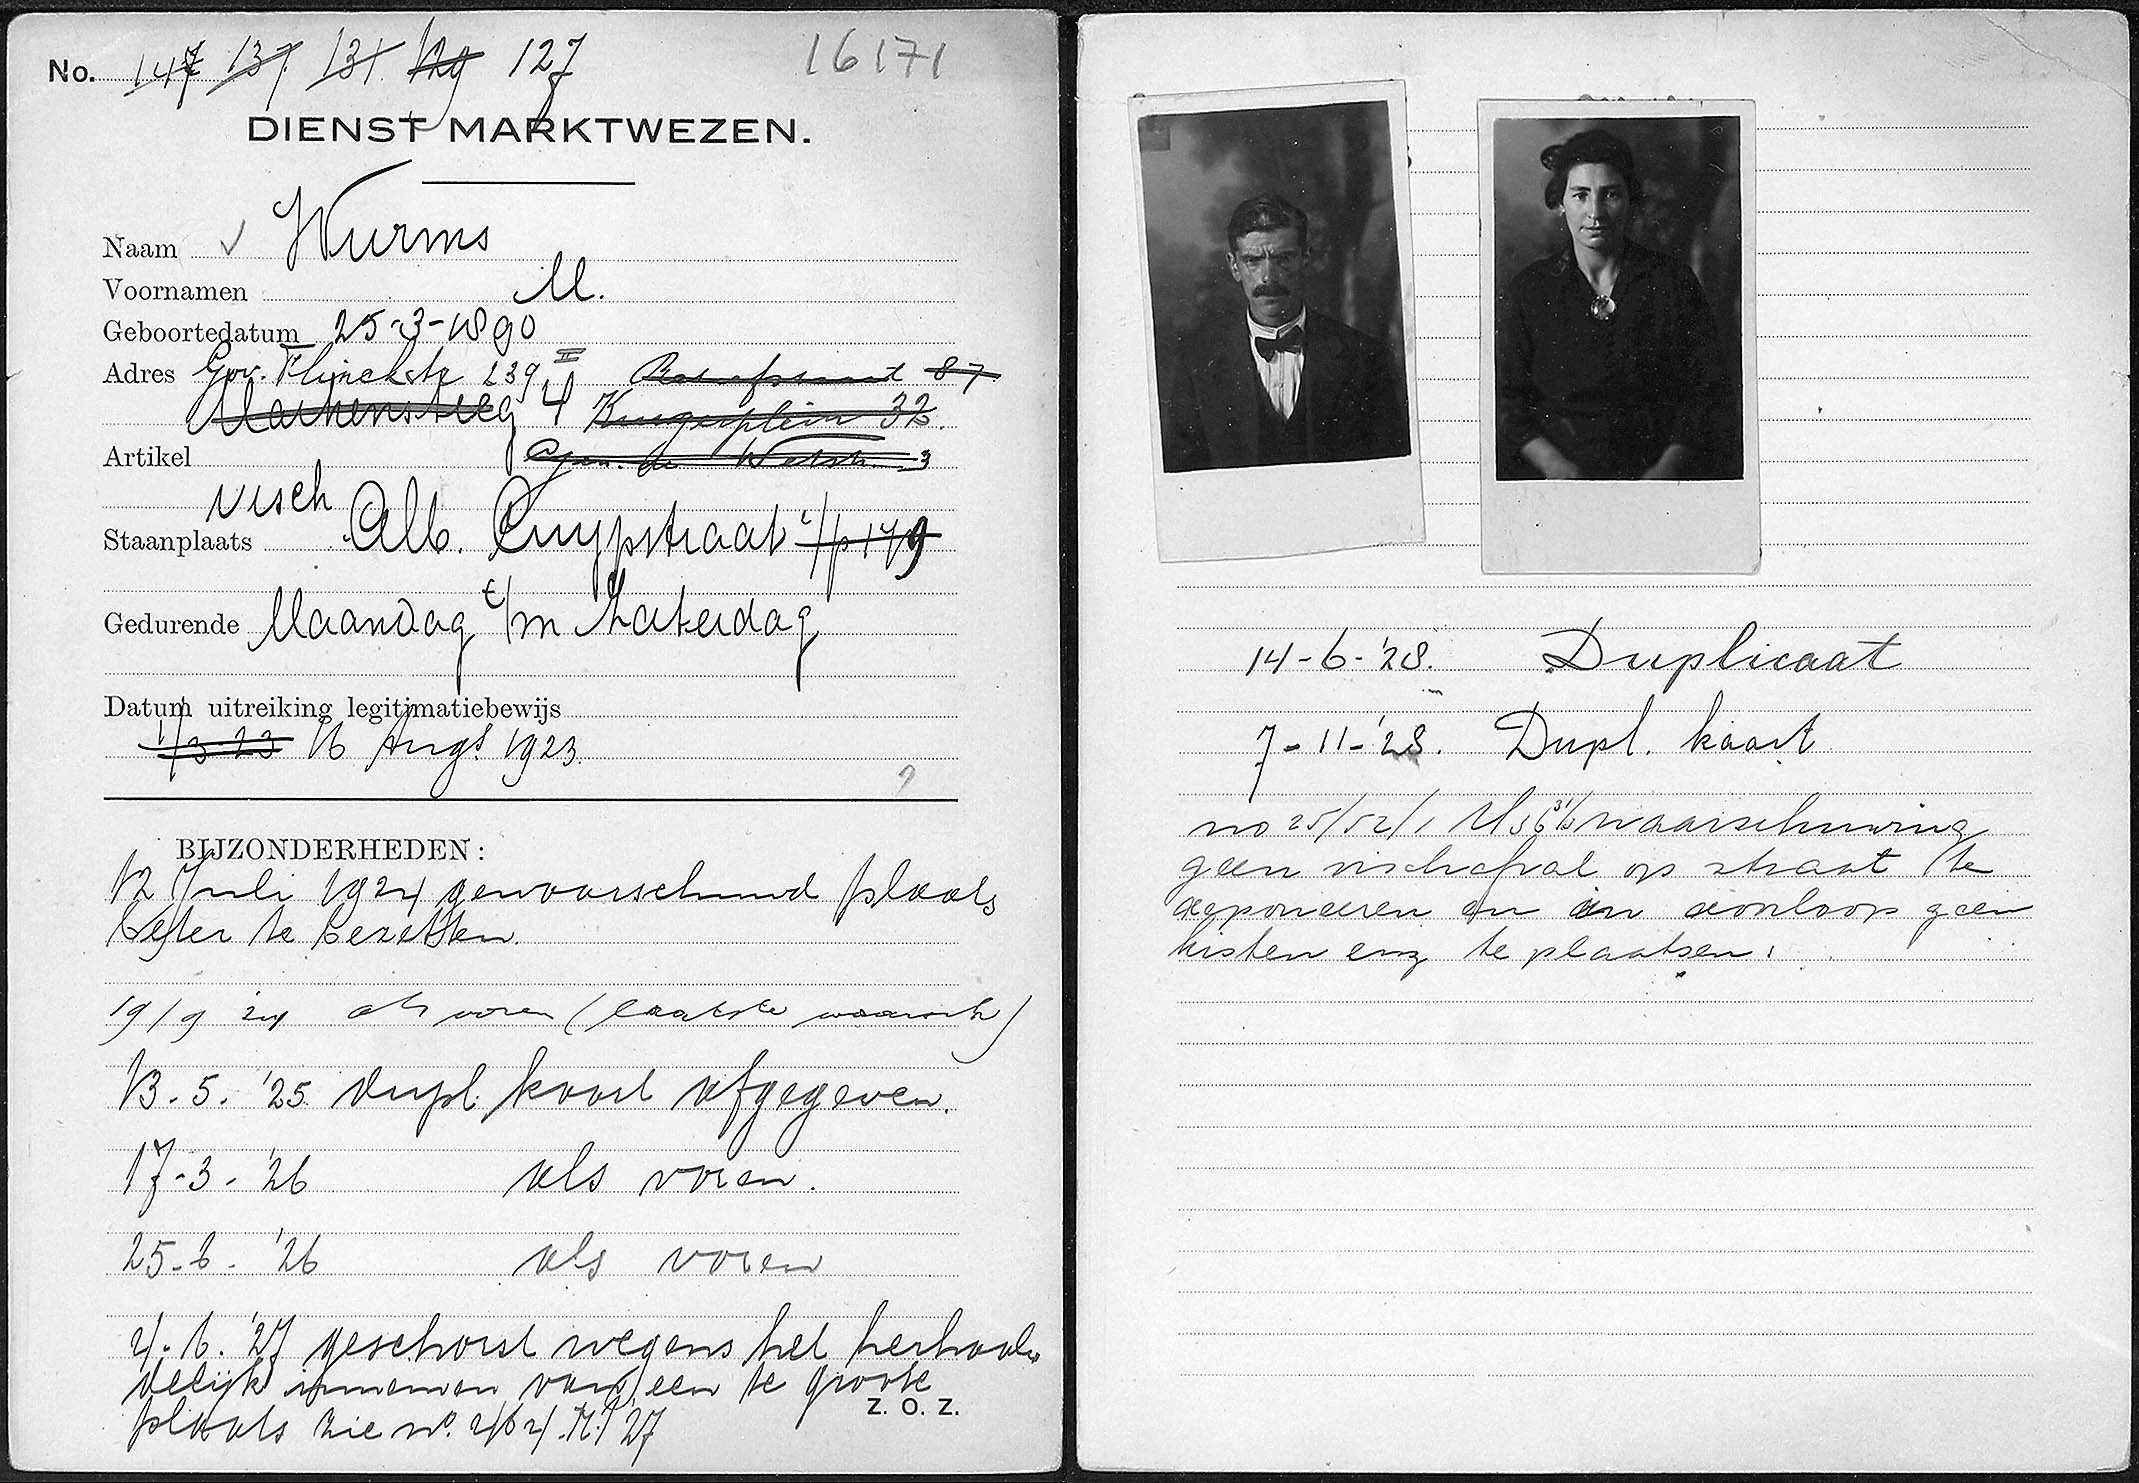 No. 147 137 131 129 127 16171
DIENST MARKTWEZEN.
Naam Wurms
Voornamen M.
Geboortedatum 25-3-1890
Adres Gov. Flinckstr 239 II 87
Markensteeg 4 Krugerplein 32.
Artikel de Wetstr. 3
visch
Staanplaats Alb. Cuypstraat t/o 179
Gedurende Maandag t/m Zaterdag
Datum uitreiking legitimatiebewijs
1/3-23 16 Augs 1923.
BIJZONDERHEDEN:
12 Juli 1924 gewaarschuwd plaats
beter te bezetten.
19/9 24 als voren (laatste waarsch)
13.5.'25 Dupl. kaart afgegeven.
17-3-'26 als voren.
25-6-'26 als voren
4.6.'27 geschorst wegens het herhaal-
delijk innemen van een te groote
plaats zie no. 464 M. '27
Z. O. Z.
14-6-'28. Duplicaat
7-11-'28. Dupl. kaart
no 25/52/1 M 36 waarschuwing
geen vischafval op straat te
deponeren en in doorloop geen
kisten enz te plaatsen.